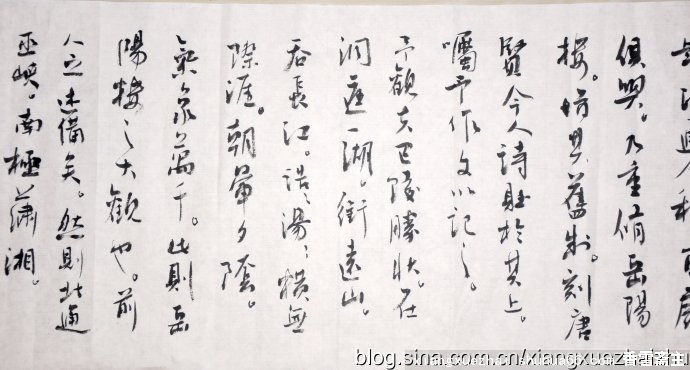 政通人和百廢
俱興。乃重脩岳陽
樓。增其舊制。刻唐
賢今人詩賦於其上。
囑予作文以記之。
予觀夫巴陵勝狀。在
洞庭一湖。銜遠山。
吞長江。浩〻湯〻橫無
際涯。朝暉夕陰。
氣象萬千。此則岳
陽樓之大觀也。前
人之述備矣。然則北通
巫峽。南極瀟湘。
blog.sina.com.cn/xiangxuezhaizhu
香雪斋主